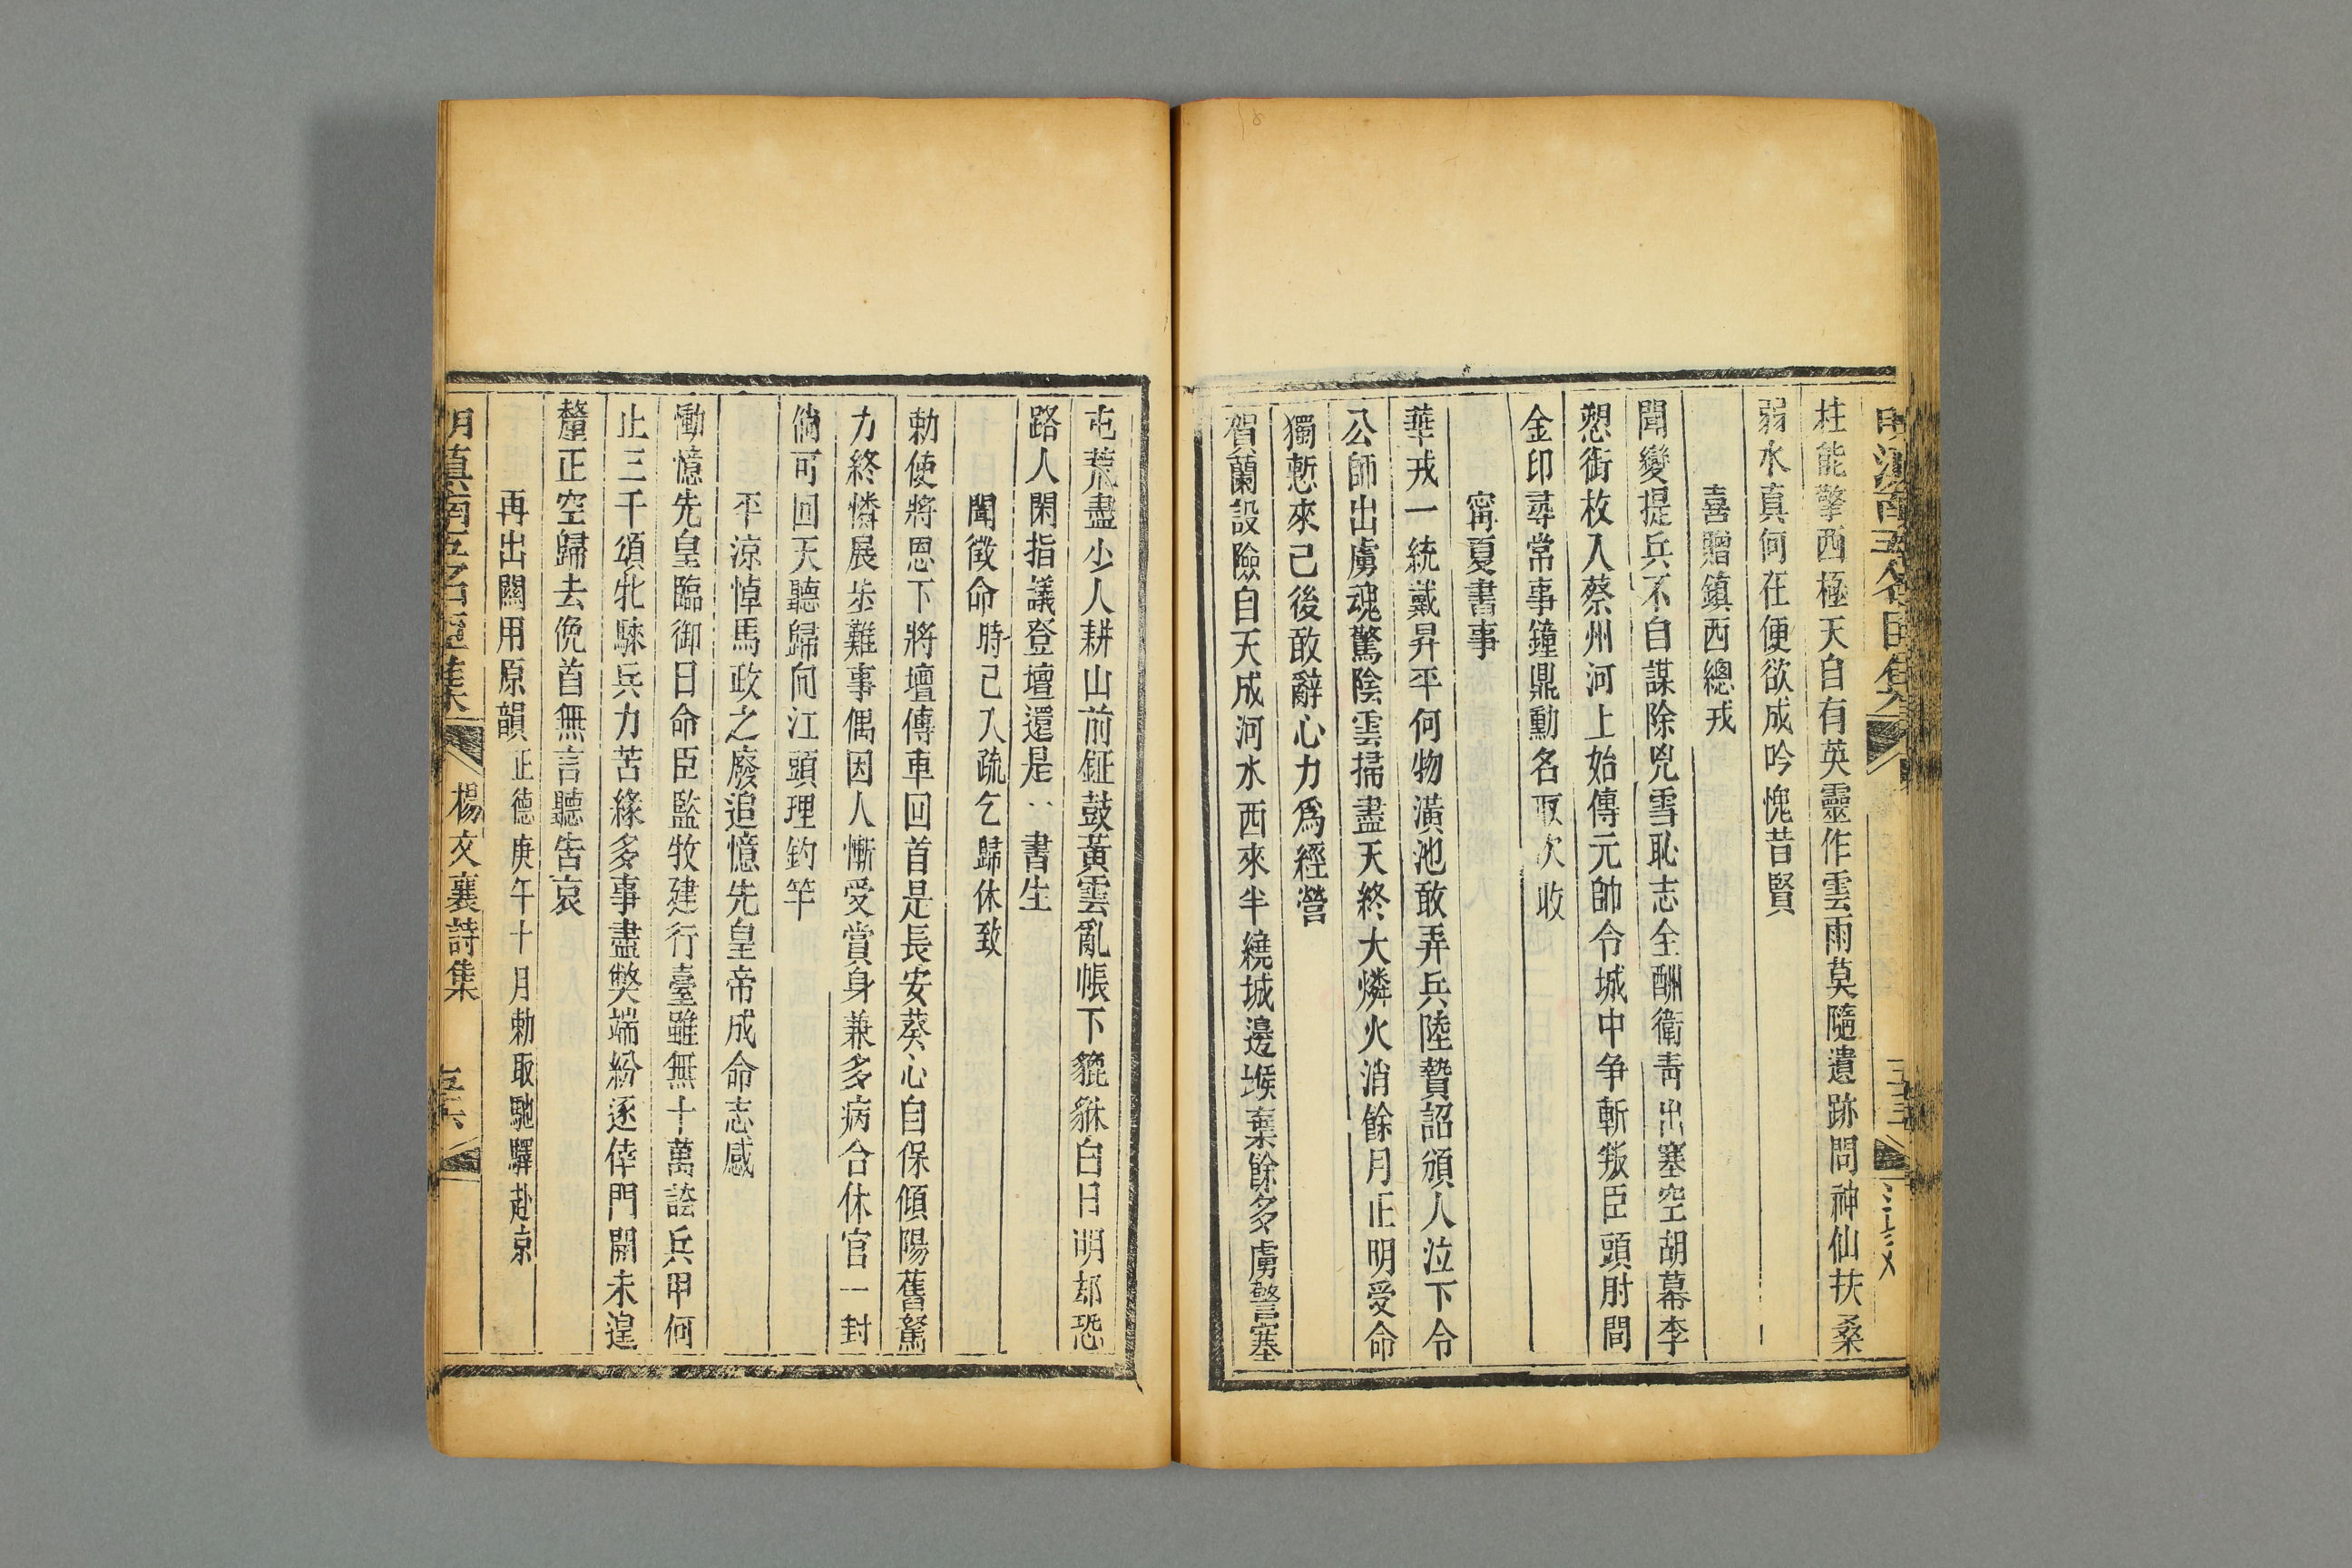 柱能擎西極天自有英靈作雲雨莫隨遺跡問神仙扶桑
弱水真何在便欲成吟愧昔賢
喜贈鎮西總戎
聞變提兵不自謀除兇雪恥志全酬衛靑出塞空胡幕李
愬銜枚入蔡州河上始傳元帥令城中争斬叛臣頭肘間
金印尋常事鐘鼎勳名取次收
甯夏書事
華戎一統戴昇平何物潢池敢弄兵陸贄詔頒人泣下令
公師出虜魂驚陰雲掃盡天終大燐火消餘月正明受命
獨慙來已後敢辭心力爲經營
賀蘭設險自天成河水西來半繞城邊堠棄餘多虜警塞
屯荒盡少人耕山前鉦鼓黃雲亂帳下貔貅白日明却恐
路人閑指議登壇還是書生
聞徵命時已入疏乞歸休致
勅使將恩下將壇傳車回首是長安葵心自保傾陽舊駑
力終憐展步難事偶因人慚受賞身兼多病合休官一封
倘可回天聽歸向江頭理釣竿
平涼悼馬政之廢追憶先皇帝成命志感
慟憶先皇臨御日命臣監牧建行臺雖無十萬誇兵甲何
止三千頌牝騋兵力苦緣多事盡弊端紛逐倖門開未遑
釐正空歸去俛首無言聽告哀
再出關用原韻正德庚午十月勅取馳驛赴京
楊文襄詩集